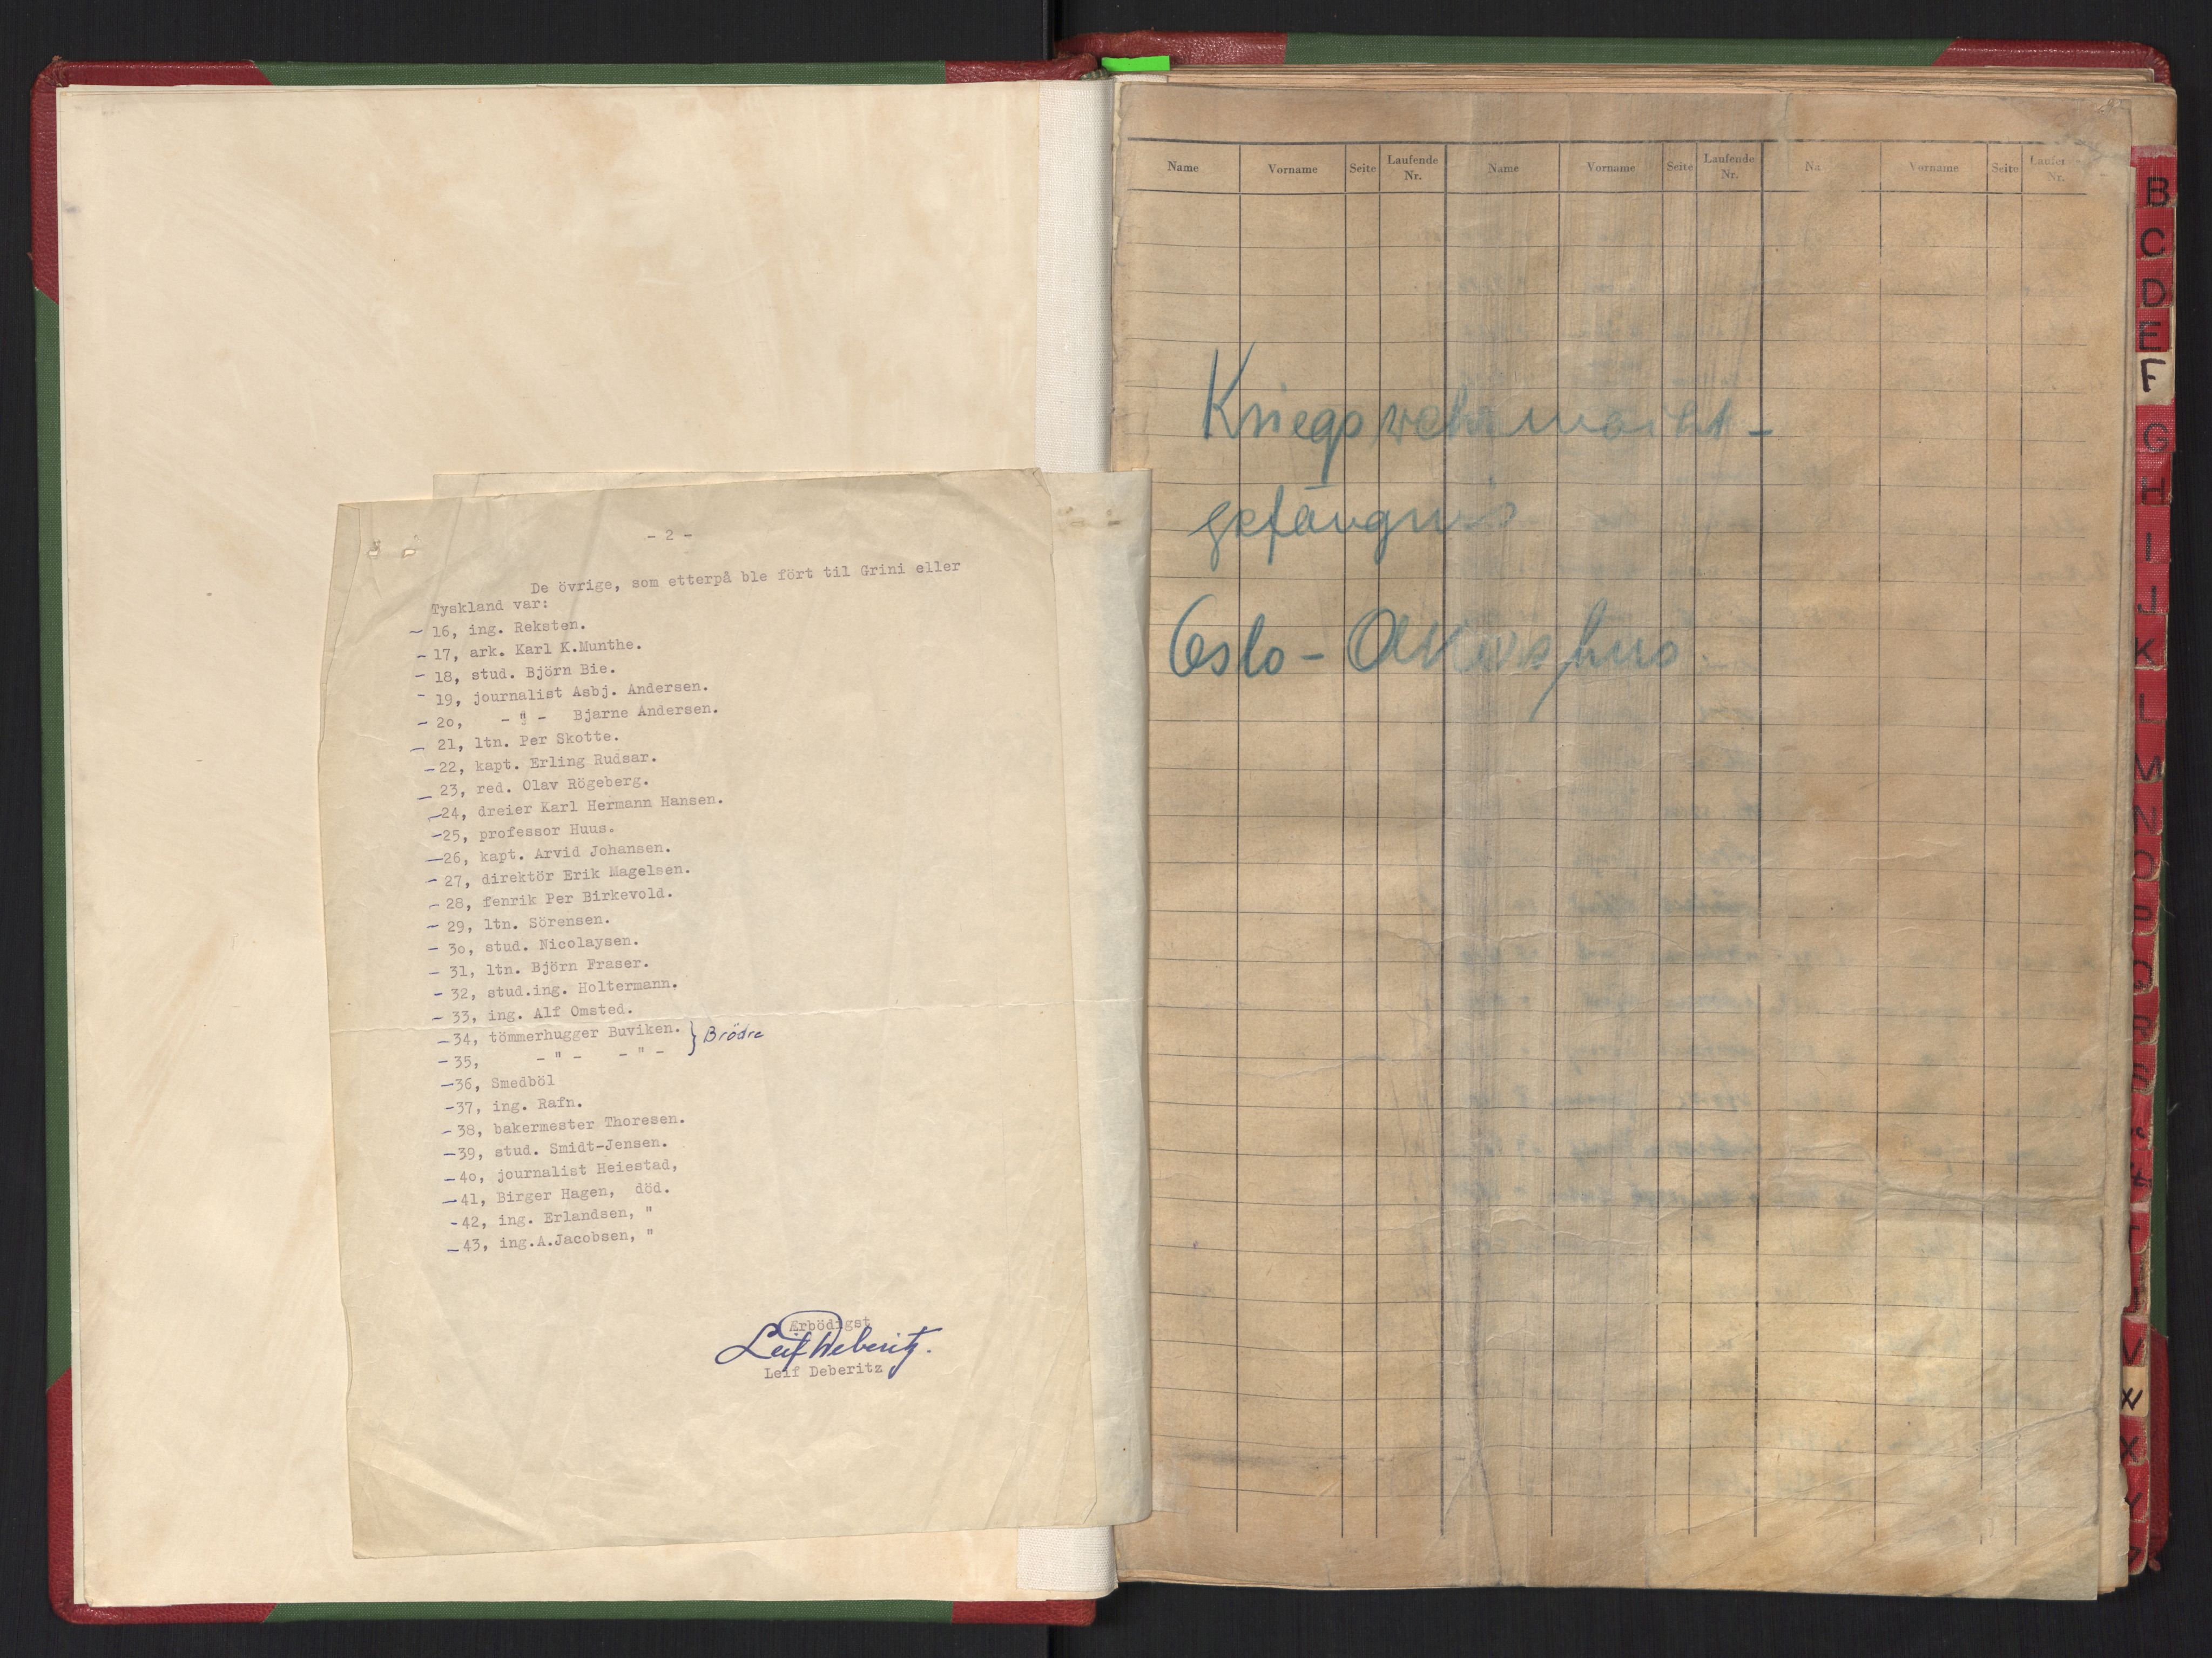 - 2 -
De övrige, som etterpå ble fört til Grini eller
Tyskland var:
— 16, ing. Reksten.
— 17, ark. Karl K.Munthe.
— 18, stud. Björn Bie.
— 19, journalist Asbj. Andersen.
— 2o, - " - Bjarne Andersen.
— 21, ltn. Per Skotte.
— 22, kapt. Erling Rudsar.
— 23, red. Olav Rögeberg.
— 24, dreier Karl Hermann Hansen.
— 25, professor Huus.
— 26, kapt. Arvid Johansen.
— 27, direktör Erik Magelsen.
— 28, fenrik Per Birkevold.
— 29, ltn. Sörensen.
— 3o, stud. Nicolaysen.
— 31, ltn. Björn Fraser.
— 32, stud.ing. Holtermann.
— 33, ing. Alf Omsted.
— 34, tömmerhugger Buviken. } Brödre
— 35, - " - - " -
— 36, Smedböl
— 37, ing. Rafn.
— 38, bakermester Thoresen.
— 39, stud. Smidt-Jensen.
— 4o, journalist Heiestad,
— 41, Birger Hagen, död.
— 42, ing. Erlandsen, "
— 43, ing.A.Jacobsen, "
Ærbödigst
Leif Deberitz.
Leif Deberitz
Name Vorname Seite Laufende Nr. Name Vorname Seite Laufende Nr. Na Vorname Seite Laufen Nr.
Kriegswehrmacht-
gefängnis
Oslo - Akershus
B
C
D
E
F
G
H
I
J
K
L
M
N
O
P
Q
R
V
W
X
Y